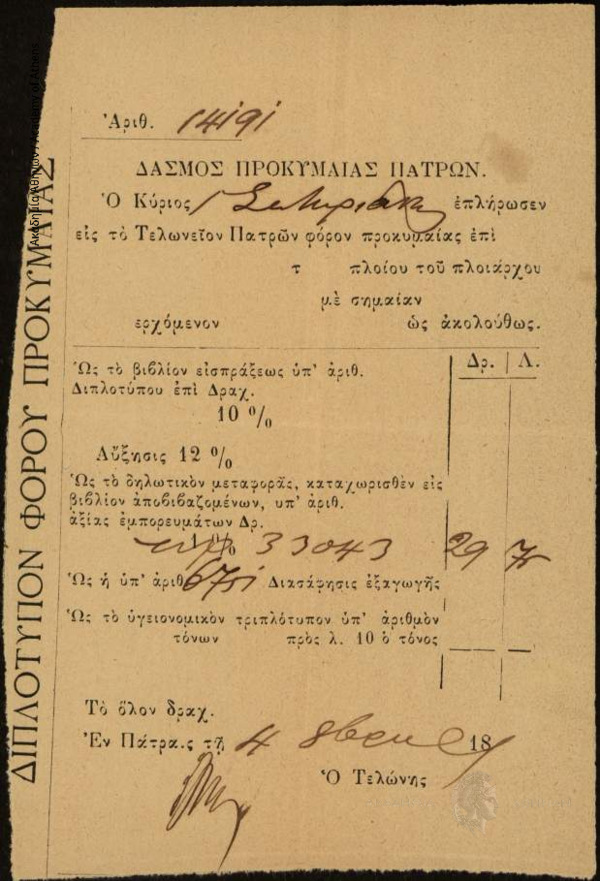 Ἀριθ. 14191
ΔΑΣΜΟΣ ΠΡΟΚΥΜΑΙΑΣ ΠΑΤΡΩΝ.
Ὁ Κύριος ἐπλήρωσεν
εἰς τὸ Τελωνεῖον Πατρῶν φόρον προκυμαίας ἐπὶ
τ πλοίου τοῦ πλοιάρχου
μὲ σημαίαν
ερχόμενον ὡς ἀκολούθως.
Δρ. | Λ.
Ὡς τὸ βιβλίον εἰσπράξεως ὑπ' ἀριθ.
Διπλοτύπου ἐπὶ Δραχ.
10 %
Αὔξησις 12 %
Ὡς τὸ δηλωτικὸν μεταφορᾶς, καταχωρισθὲν εἰς
βιβλίον ἀποβιβαζομένων, ὑπ' ἀριθ.
ἀξίας ἐμπορευμάτων Δρ.
33043 29
Ὡς ἡ ὑπ' ἀριθ. Διασάφησις ἐξαγωγῆς
Ὡς τὸ ὑγειονομικὸν τριπλότυπον ὑπ' ἀριθμὸν
τόνων πρὸς λ. 10 ὁ τόνος
Τὸ ὅλον δραχ.
Ἐν Πάτραις τῇ 4 8βρίου 18
Ὁ Τελώνης
ΔΙΠΛΟΤΥΠΟΝ ΦΟΡΟΥ ΠΡΟΚΥΜΑΙΑΣ
Ακαδημία Αθηνών / Academy of Athens